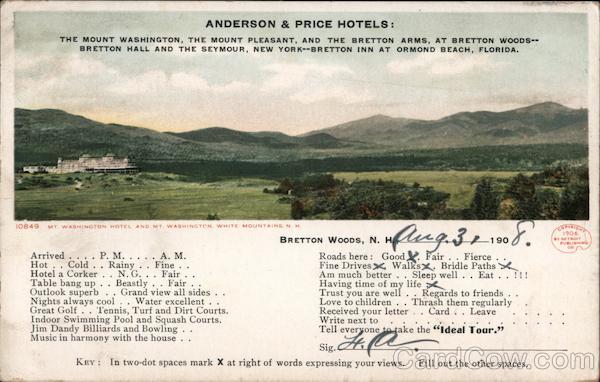 ANDERSON & PRICE HOTELS:
THE MOUNT WASHINGTON, THE MOUNT PLEASANT, AND THE BRETTON ARMS, AT BRETTON WOODS--
BRETTON HALL AND THE SEYMOUR, NEW YORK--BRETTON INN AT ORMOND BEACH, FLORIDA.
10849 MT. WASHINGTON HOTEL AND MT. WASHINGTON, WHITE MOUNTAINS, N. H.
COPYRIGHT 1906, BY DETROIT PUBLISHING CO.
BRETTON WOODS, N. H. Aug. 31 1908.
Arrived . . . . P. M. . . . . A. M.
Hot . . Cold . . Rainy . . Fine . .
Hotel a Corker . . N. G. . . Fair . .
Table bang up . . Beastly . . Fair . .
Outlook superb . . Grand view all sides . .
Nights always cool . . Water excellent . .
Great Golf . . Tennis, Turf and Dirt Courts.
Indoor Swimming Pool and Squash Courts.
Jim Dandy Billiards and Bowling . .
Music in harmony with the house . .
Roads here: Good x . Fair . . Fierce . .
Fine Drives x Walks x . Bridle Paths x
Am much better . . Sleep well . . Eat . . !!!
Having time of my life x
Trust you are well . . Regards to friends . .
Love to children . . Thrash them regularly
Received your letter . . Card . . Leave
Write next to
Tell everyone to take the "Ideal Tour."
Sig.
KEY: In two-dot spaces mark X at right of words expressing your views. Fill out the other spaces.
CardCow.com